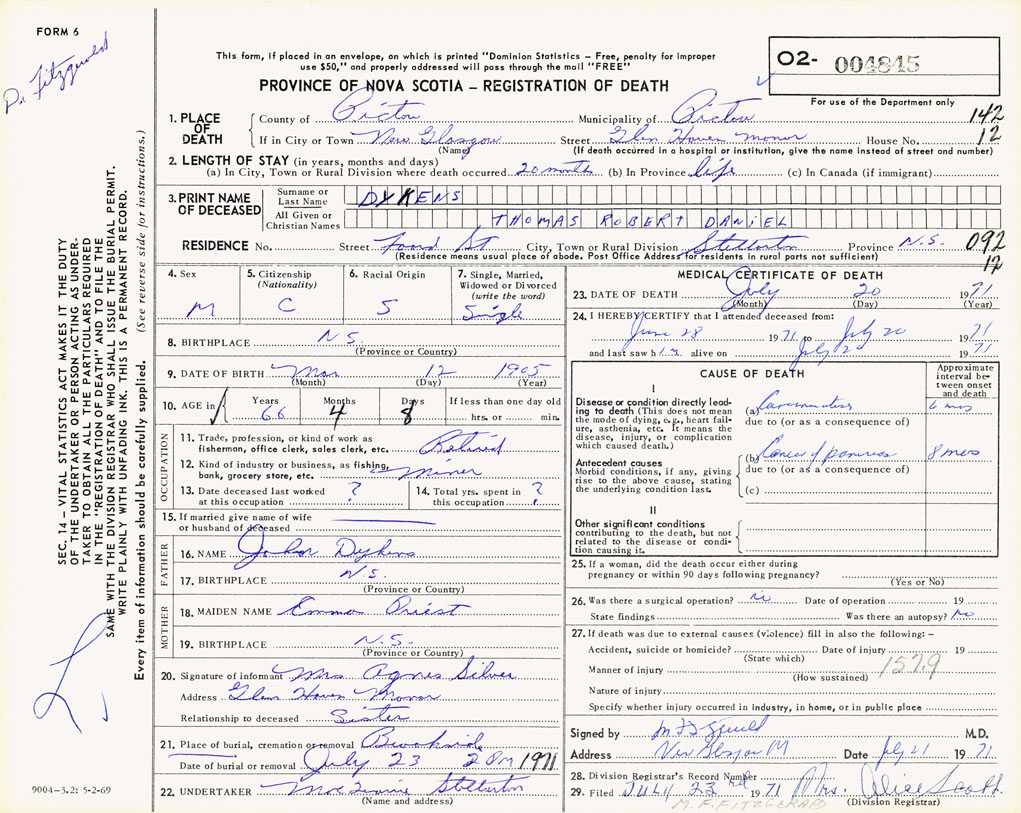 FORM 6
Dr. Fitzgerald
This form, if placed in an envelope, on which is printed "Dominion Statistics – Free, penalty for improper
use $50," and properly addressed will pass through the mail "FREE"
O2- 004845
PROVINCE OF NOVA SCOTIA – REGISTRATION OF DEATH
For use of the Department only
1. PLACE OF DEATH
County of Pictou Municipality of Pictou 142
If in City or Town New Glasgow Street Glen Haven Manor House No. 12
(Name) (If death occurred in a hospital or institution, give the name instead of street and number)
2. LENGTH OF STAY (in years, months and days)
(a) In City, Town or Rural Division where death occurred 20 months (b) In Province life (c) In Canada (if immigrant)
3. PRINT NAME OF DECEASED
Surname or Last Name DYKENS
All Given or Christian Names THOMAS ROBERT DANIEL
RESIDENCE No. Street Foord St City, Town or Rural Division Stellarton Province N.S. 092
(Residence means usual place of abode. Post Office Address for residents in rural parts not sufficient) 12
4. Sex M
5. Citizenship (Nationality) C
6. Racial Origin S
7. Single, Married, Widowed or Divorced (write the word) Single
8. BIRTHPLACE N.S.
(Province or Country)
9. DATE OF BIRTH Mar 12 1905
(Month) (Day) (Year)
10. AGE in Years 66 Months 4 Days 8 If less than one day old
hrs. or min.
OCCUPATION
11. Trade, profession, or kind of work as
fisherman, office clerk, sales clerk, etc. Retired
12. Kind of industry or business, as fishing,
bank, grocery store, etc. Miner
13. Date deceased last worked
at this occupation ?
14. Total yrs. spent in
this occupation ?
15. If married give name of wife
or husband of deceased
FATHER
16. NAME John Dykens
17. BIRTHPLACE N.S.
(Province or Country)
MOTHER
18. MAIDEN NAME Emma Priest
19. BIRTHPLACE N.S.
(Province or Country)
20. Signature of informant Mrs Agnes Silver
Address Glen Haven Manor
Relationship to deceased Sister
21. Place of burial, cremation or removal Brookside
Date of burial or removal July 23 2 PM 1971
22. UNDERTAKER Stellarton
(Name and address)
MEDICAL CERTIFICATE OF DEATH
23. DATE OF DEATH July 20 1971
(Month) (Day) (Year)
24. I HEREBY CERTIFY that I attended deceased from:
June 28 1971 to July 20 1971
and last saw him alive on July 20 1971
CAUSE OF DEATH
Approximate interval between onset and death
I
Disease or condition directly leading
to death (This does not mean
the mode of dying, e.g., heart failure,
asthenia, etc. It means the
disease, injury, or complication
which caused death.)
(a) 6 mos
due to (or as a consequence of)
Antecedent causes
Morbid conditions, if any, giving
rise to the above cause, stating
the underlying condition last.
(b) Cancer of pancreas 8 mos
due to (or as a consequence of)
(c)
II
Other significant conditions
contributing to the death, but not
related to the disease or condition
causing it.
25. If a woman, did the death occur either during
pregnancy or within 90 days following pregnancy?
(Yes or No)
26. Was there a surgical operation? no Date of operation 19
State findings Was there an autopsy? No
27. If death was due to external causes (violence) fill in also the following: –
Accident, suicide or homicide? Date of injury 19
(State which)
1579
Manner of injury
(How sustained)
Nature of injury
Specify whether injury occurred in industry, in home, or in public place
Signed by M F Fitzgerald M.D.
Address New Glasgow Date July 21 1971
28. Division Registrar's Record Number
29. Filed JULY 23rd 1971 Mrs. Alice Scott
M. F. FITZGERALD (Division Registrar)
SEC. 14 – VITAL STATISTICS ACT MAKES IT THE DUTY
OF THE UNDERTAKER OR PERSON ACTING AS UNDER-
TAKER TO OBTAIN ALL THE PARTICULARS REQUIRED
IN THE "REGISTRATION OF DEATH" AND TO FILE THE
SAME WITH THE DIVISION REGISTRAR WHO SHALL ISSUE THE BURIAL PERMIT.
WRITE PLAINLY WITH UNFADING INK. THIS IS A PERMANENT RECORD.
Every item of information should be carefully supplied. (See reverse side for instructions.)
9004-3.2: 5-2-69